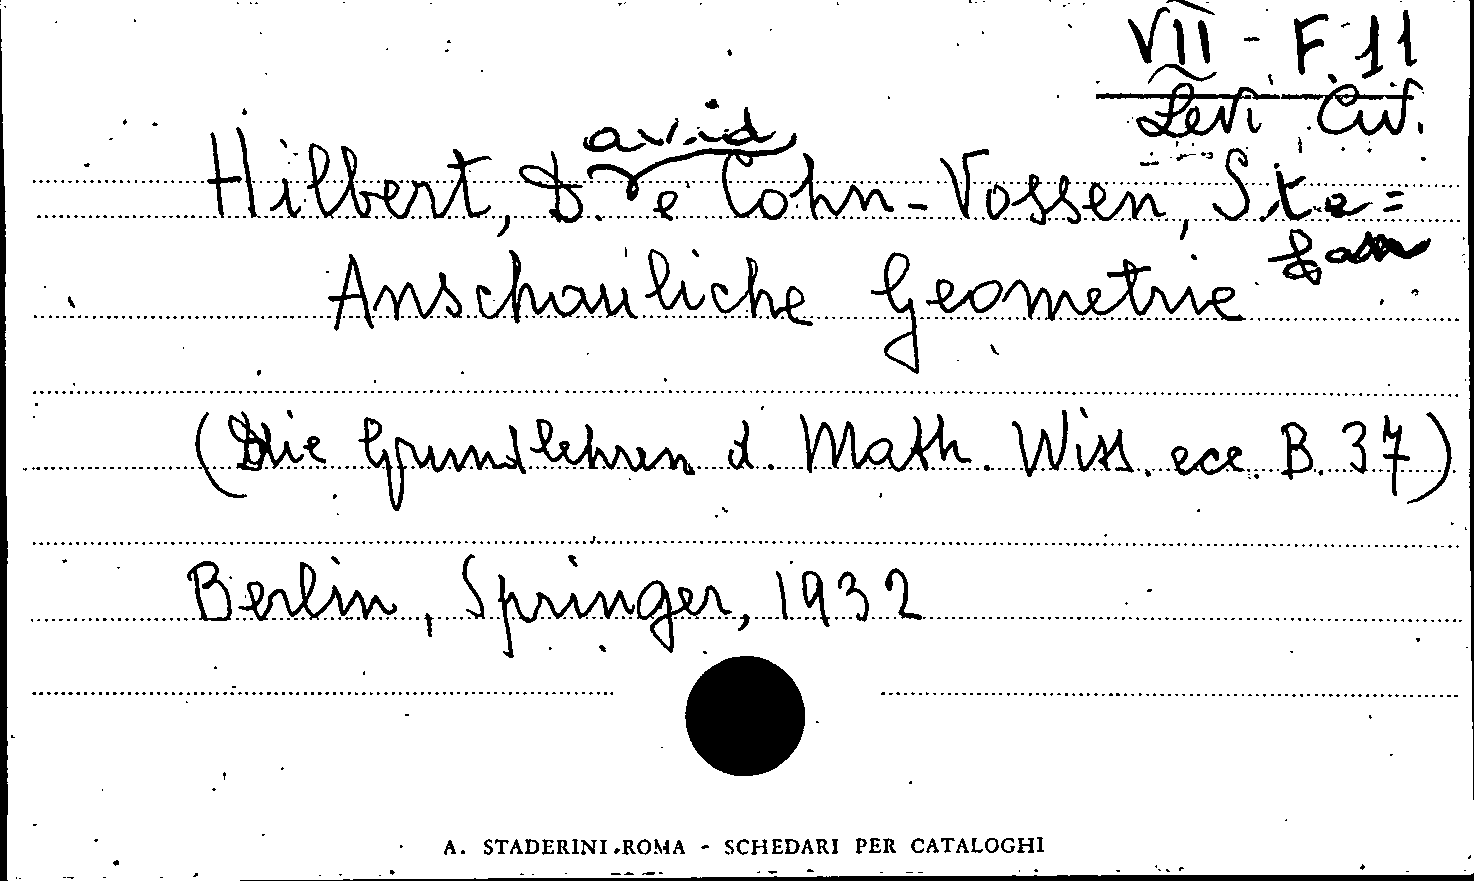 VII - F. 11
Levi Civ.
Hilbert, David e Cohn-Vossen, Ste=
fan
Anschauliche Geometrie
(Die Grundlehren d. Math. Wiss. ecc. B. 37)
Berlin, Springer, 1932
A. STADERINI. ROMA - SCHEDARI PER CATALOGHI